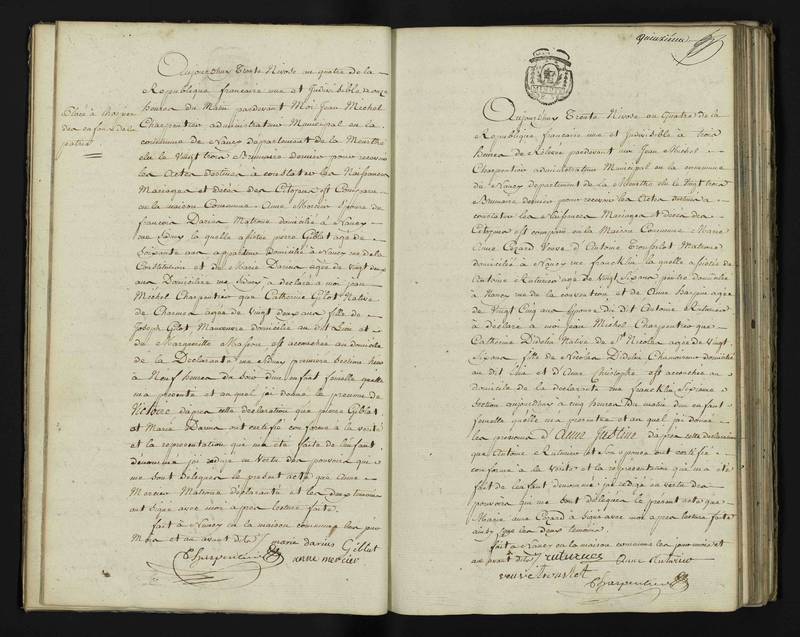 Aujourdhuy Trente Nivose an quatre de la
République française une et Indivisible
heures du Matin pardevant Moi Jean Michel
Charpentier administrateur Municipal en la
commune de Nancy Département de la Meurthe
elu le Vingt trois Brumaire dernier pour recevoir
les Actes destinés à constater les Naissances
Mariages et Décès des Citoyens est Comparue
en la maison Commune Anne Mercier Epouse de
françois Darius Matrone domiciliée à Nancy
rue Sidney la quelle assistée pierre Giblot agé de
Soixante ans domicilié à Nancy rue de la
Constitution et de Marie Darius agée de Vingt deux
ans Domiciliée rue Sidney a déclaré à moi jean
Michel Charpentier que Catherine Gilot Native
de Charmes agée de Vingt deux ans fille de
Joseph Gilot Manoeuvre domicilié au dit Lieu et
de Margueritte Massons est accouchée au domicile
de la Déclarante rue Sidney première Section hier
à Neuf heures du Soir d'un enfant femelle quelle
ma présenté et auquel j'ai donné le prenom de
Victoire d'apres cette déclaration que pierre Giblot
et Marie Darius ont certifié conforme à la verité
et la représentation qui ma été faite de lenfant
denommé j'ai rédigé en Vertu des pouvoirs qui
me sont délégués le présent acte que Anne
Mercier Matrone déclarante et les deux temoins
ont Signé avec moi apres lecture faite.
fait à Nancy en la maison commune les jour
Mois et an avant dits
marie darius Giblot
Charpentier anne mercier
Place à
des enfans de la
patrie
quinzième
Aujourdhuy Trente Nivose an Quatre de la
République française une et Indivisible à trois
heures de Relevée pardevant moi Jean Michel
Charpentier administrateur Municipal en la commune
de Nancy département de la Meurthe elu le Vingt trois
Brumaire dernier pour recevoir les Actes destinés à
constater les Naissances Mariages et décès des
Citoyens est comparu en la Maison Commune Marie
Anne Cezard Veuve d'Antoine Trousselot Matrone
domiciliée à Nancy rue francklin la quelle assistée de
Antoine Ruturier agé de Vingt Six ans peintre domicilié
à Nancy rue de la convention et de Anne harpin agée
de Vingt Cinq ans épouse du dit Antoine Ruturier
à déclaré à moi Jean Michel Charpentier que
Catherine Didelin Native de St Nicolas agée de Vingt
Six ans fille de Nicolas Didelin domicilié
au dit Lieu et d'Anne christophe est accouchée au
domicile de la déclarante rue francklin Sixième
Section aujourdhuy à cinq heures du matin d'un enfant
femelle quelle ma présenté et auquel j'ai donné
les prenoms d'Anne Justine d'apres cette déclaration
que Antoine Ruturier et Son épouse ont certifié
conforme à la Vérité et la représentation que m'a été
fait de lenfant denommé j'ai redigé en vertu des
pouvoirs qui me sont délégués le présent acte que
Marie anne Cezard à Signé avec moi apres lecture faite
ainsi que les deux temoins.
fait à Nancy en la maison commune les jour mois et
an avant dits
ruturier Anne Ruturier
veuve trouslot
Charpentier